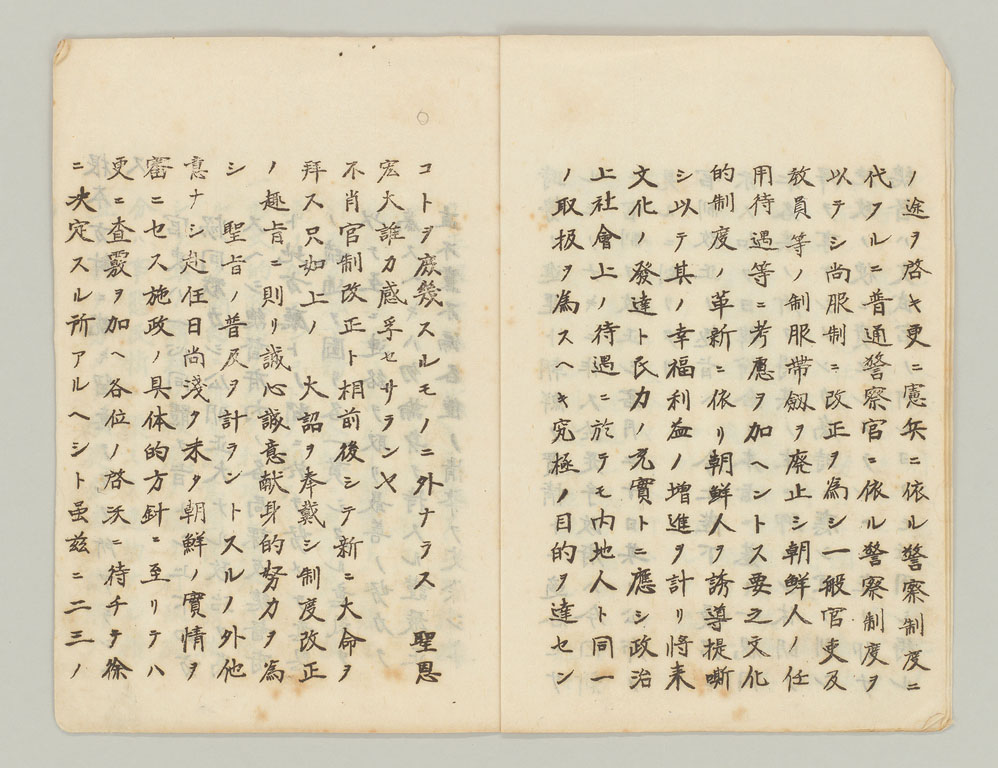 ノ途ヲ啓キ更ニ憲兵ニ依ル警察制度ニ
代フルニ普通警察官ニ依ル警察制度ヲ
以テシ尚服制ニ改正ヲ為シ一般官吏及
教員等ノ制服帯劔ヲ廃止シ朝鮮人ノ任
用待遇等ニ考慮ヲ加ヘントス要之文化
的制度ノ革新ニ依リ朝鮮人ヲ誘導提嘶
シ以テ其ノ幸福利益ノ増進ヲ計リ将来
文化ノ發達ト民力ノ充實トニ應シ政治
上社會上ノ待遇ニ於テモ内地人ト同一
ノ取扱ヲ為スヘキ究極ノ目的ヲ達セン
コトヲ庻幾スルモノニ外ナラス 聖恩
宏大誰カ感孚セサランヤ
不肖官制改正ト相前後シテ新ニ大命ヲ
拜ス只如上ノ 大詔ヲ奉戴シ制度改正
ノ趣旨ニ則リ誠心誠意献身的努力ヲ為
シ 聖旨ノ普及ヲ計ラントスルノ外他
意ナシ赴任日尚淺ク未タ朝鮮ノ實情ヲ
審ニセス施政ノ具体的方針ニ至リテハ
更ニ査覈ヲ加ヘ各位ノ啓沃ニ待チテ徐
ニ决定スル所アルヘシト虽茲ニ二三ノ